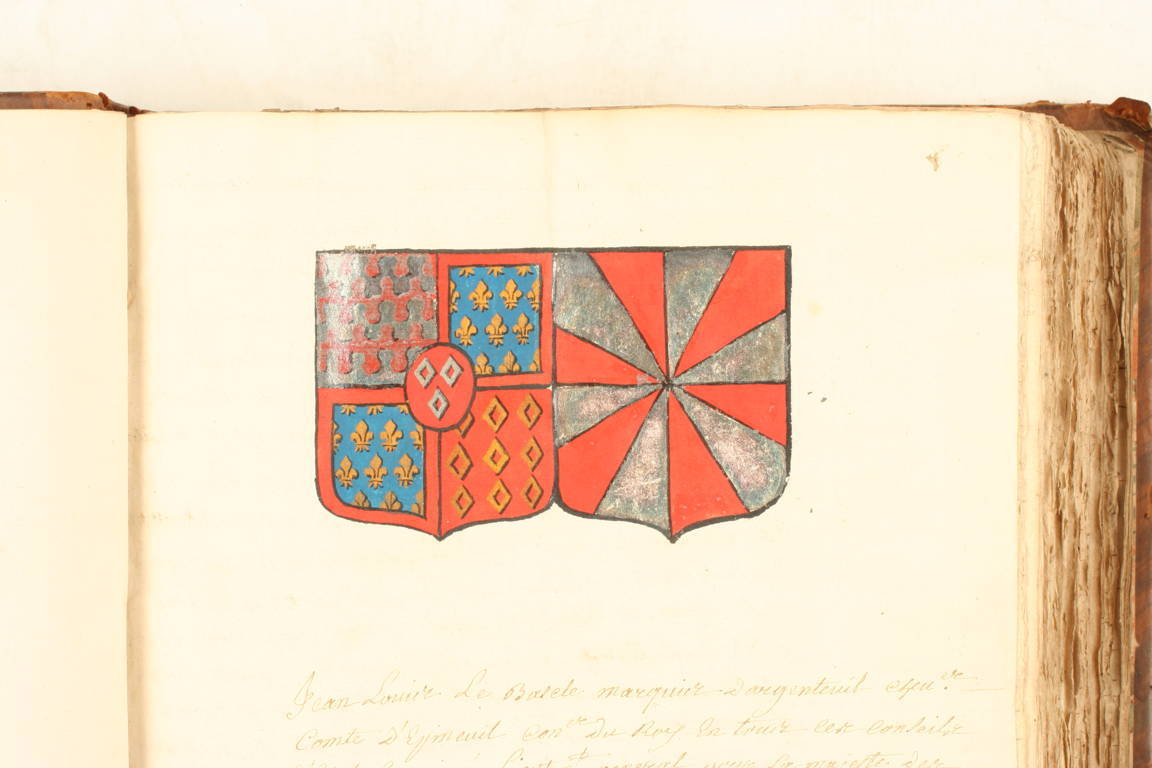 Jean Louis Le Bascle marquis Dargenteuil cheu.er
Comte D'Epineuil Con.er Du Roy En tous ces conseils
Lieut.t general pour Sa majesté des